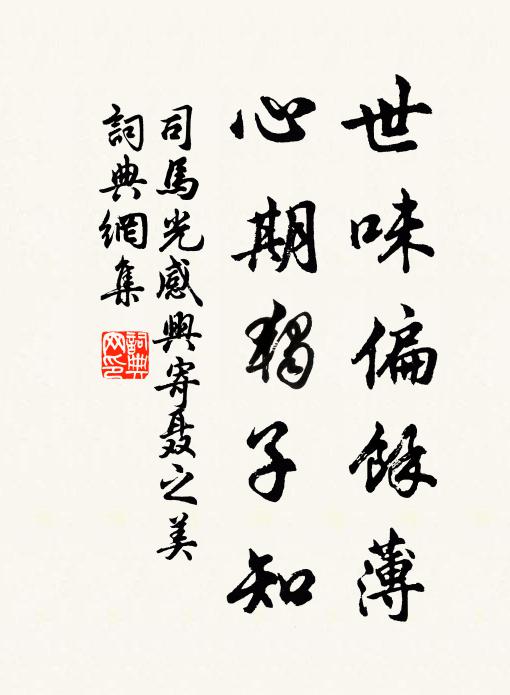 世味偏餘薄
心期獨子知
司馬光感興寄聶之美
詞典網集
詞典網印